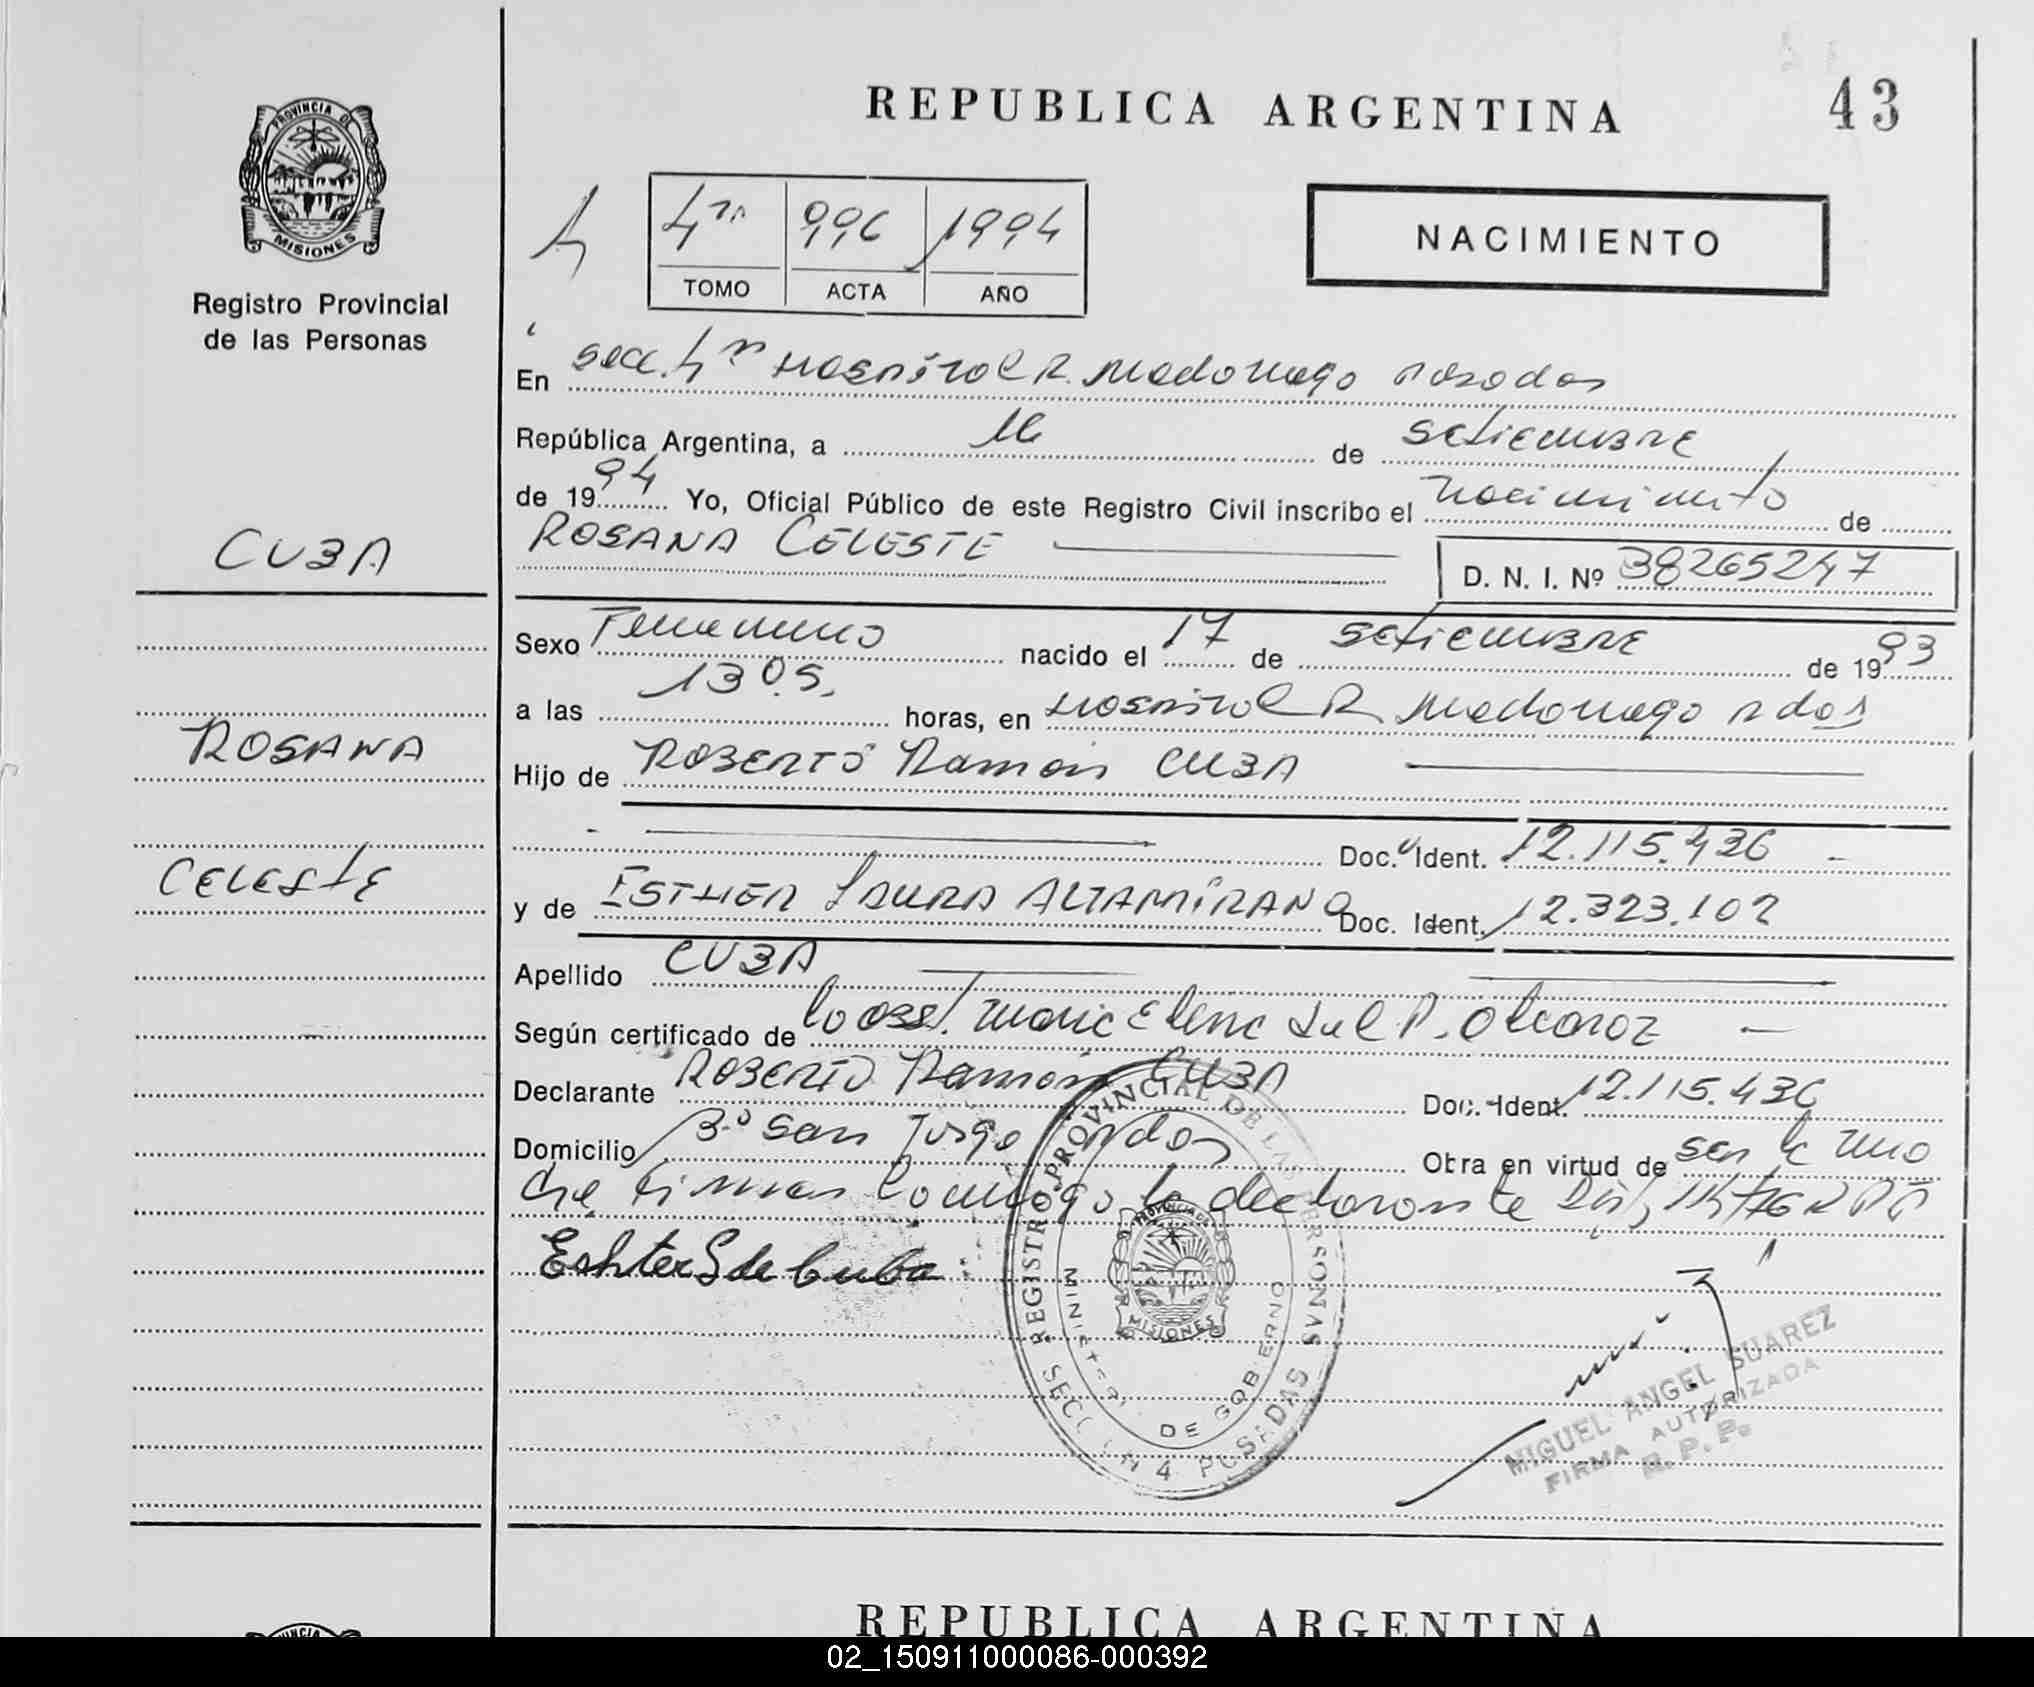 REPUBLICA ARGENTINA
43
PROVINCIA DE
MISIONES
Registro Provincial
de las Personas
4
4ta 996 1994
TOMO ACTA AÑO
NACIMIENTO
En Secc. 4ta Hospital R. Madariaga Posadas
República Argentina, a 16 de Setiembre
de 1994 Yo, Oficial Público de este Registro Civil inscribo el nacimiento de
ROSANA CELESTE
D. N. I. Nº 38265247
CUBA
ROSANA
CELESTE
Sexo Femenino nacido el 17 de Setiembre de 1993
a las 13 05. horas, en Hospital R Madariaga Pdas
Hijo de ROBERTO Ramón CUBA
Doc. Ident. 12.115.436
y de ESTHER LAURA ALTAMIRANO Doc. Ident. 12.323.102
Apellido CUBA
Según certificado de la obst. Maria Elena del P. Alcaraz
Declarante ROBERTO Ramón CUBA Doc. Ident. 12.115.436
Domicilio Bº San Jorge Pdas Otra en virtud de ser la ma
dre, firman conmigo la declarante
Eshter S de Cuba
REGISTRO PROVINCIAL DE LAS PERSONAS
MINISTERI DE GOBIERNO
PROVINCIA DE
MISIONES
SECC 4 POSADAS
MIGUEL ANGEL SUAREZ
FIRMA AUTORIZADA
R.P.P.
REPUBLICA ARGENTINA
02_150911000086-000392